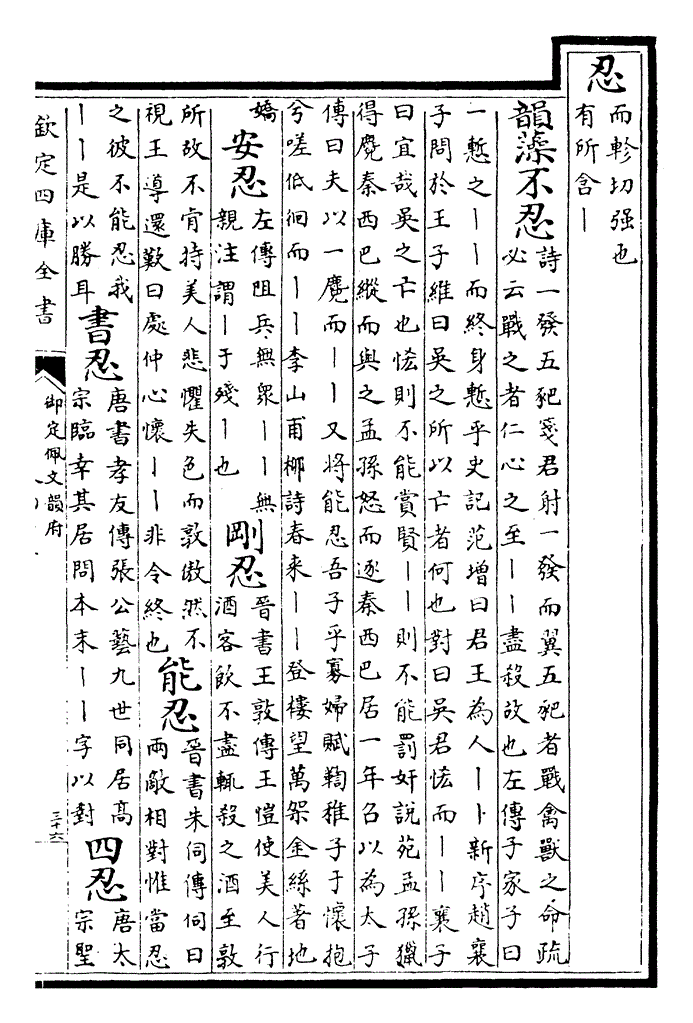 忍 而軫切强也
有所含丨
韻藻 不忍 詩一發五豝箋君射一發而翼五豝者戰禽獸之命疏
必云戰之者仁心之至丨丨盡殺故也左傳子家子曰
一慙之丨丨而終身慙乎史記范增曰君王為人丨丨新序趙襄
子問於王子維曰吳之所以亡者何也對曰吳君恡而丨丨襄子
曰宜哉吳之亡也恡則不能賞賢丨丨則不能罰奸說苑孟孫獵
得麑秦西巴縱而與之孟孫怒而逐秦西巴居一年召以為太子
傅曰夫以一麑而丨丨又將能忍吾子乎寡婦賦鞠稚子于懷抱
兮嗟低徊而丨丨李山甫柳詩春來丨丨登樓望萬架金絲著地
嬌
安忍 左傳阻兵無衆丨丨無
親注謂丨于殘丨也
剛忍 晉書王敦傳王愷使美人行
酒客飲不盡輒殺之酒至敦
所故不肯持美人悲懼失色而敦傲然不
視王導還歎曰處仲心懷丨丨非令終也
能忍 晉書朱伺傳伺曰
兩敵相對惟當忍
之彼不能忍我
丨丨是以勝耳
書忍 唐書孝友傳張公藝九世同居高
宗臨幸其居問本末丨丨字以對
四忍 唐太
宗聖
欽定四庫全書
御定佩文韻府
三十六